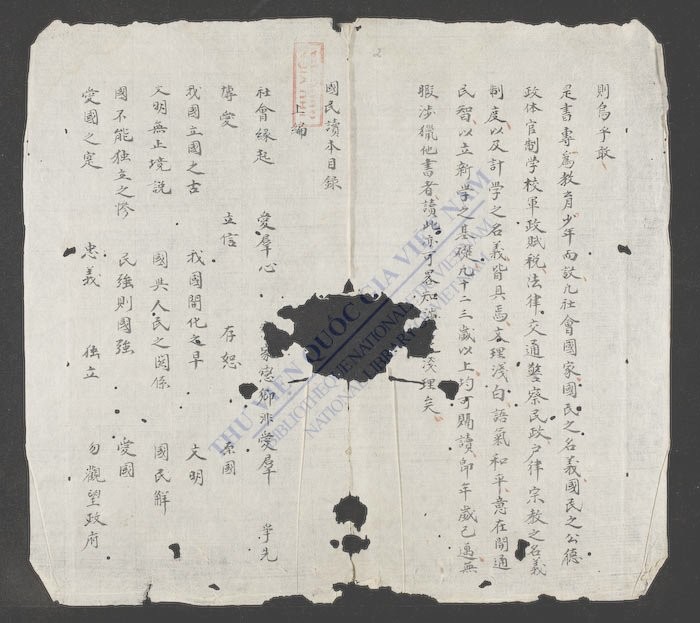 則烏乎敢
是書專爲教育少年而設凡社會國家國民之名義國民之公德
政体官制学校軍政賦税法律交通警察民政戸律宗教之名義
制度以及計学之名義皆具焉文理淺白語氣和平意在開通
民智以立新学之基礎凡十二三歲以上均可購讀即年歲已過無
暇涉獵他書者讀此亦可畧知淺理矣
國民讀本目錄
上編
社會緣起 愛羣心 家恋鄉非愛羣 爭先
博愛 立信 存恕 原國
我國立國之古 我國開化之早 文明
文明無止境説 國與人民之関係 國民解
國不能独立之惨 民強則國強 愛國
愛國之寔 忠義 独立 勿觀望政府
2
THƯ VIỆN QUỐC GIA VIỆT NAM
BIBLIOTHÈQUE NATIONALE DU VIETNAM
NATIONAL LIBRARY OF VIETNAM